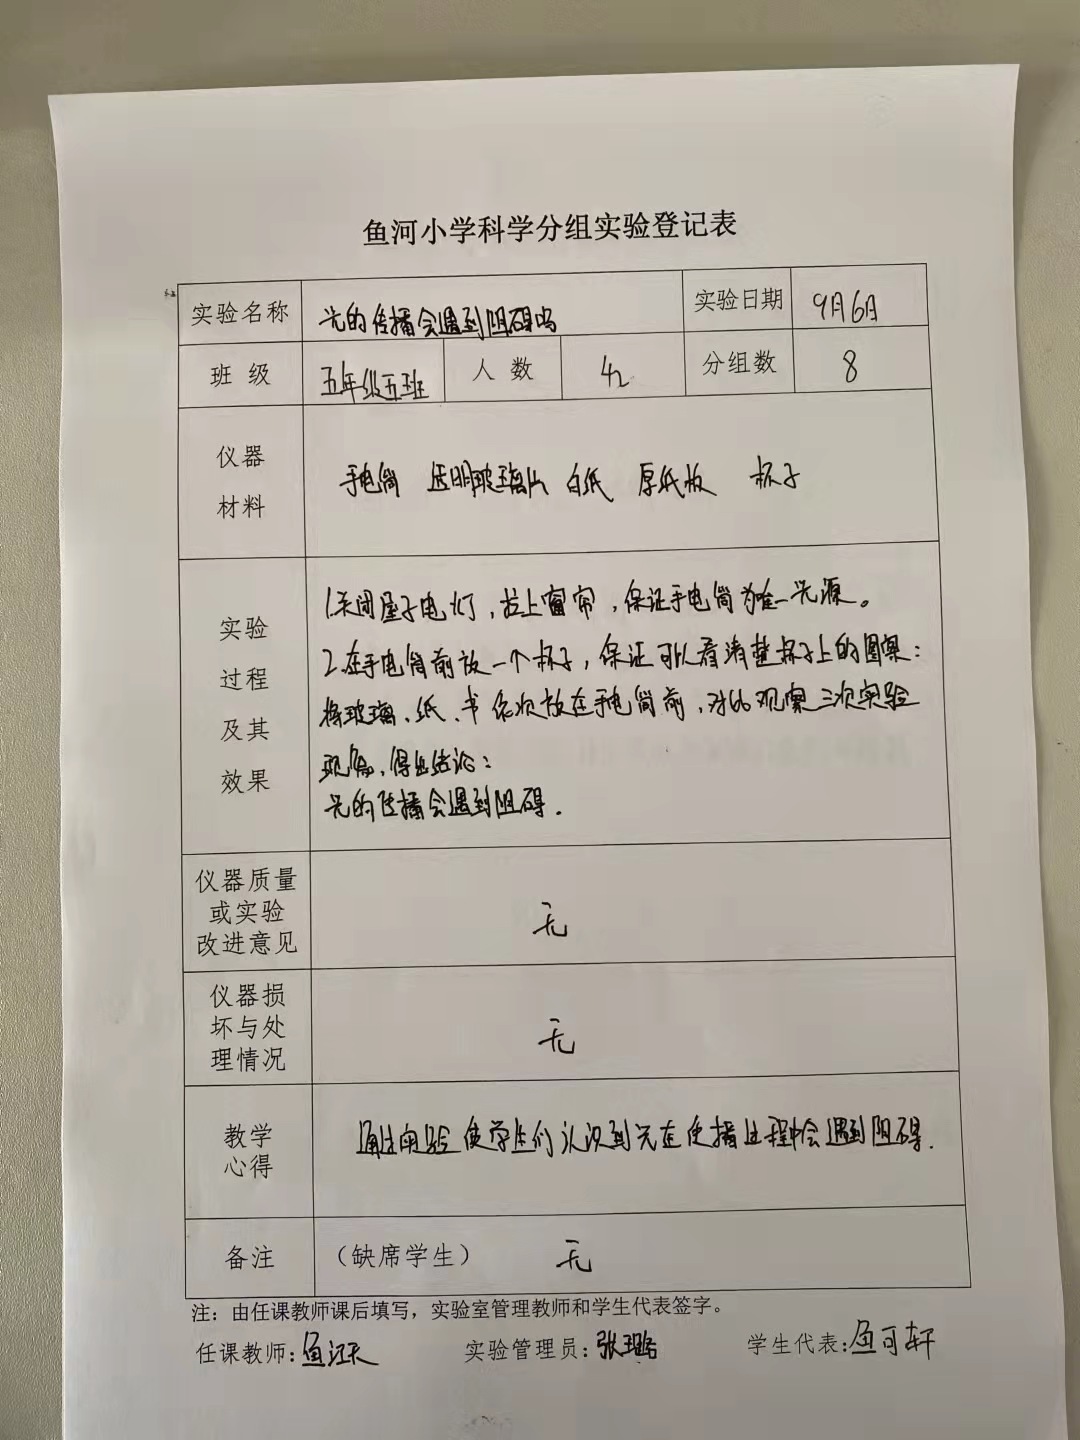 鱼河小学科学分组实验登记表
实验名称 光的传播会遇到阻碍吗 实验日期 9月6日
班 级 五年级五班 人 数 42 分组数 8
仪器
材料
手电筒 透明玻璃片 白纸 厚纸板 杯子
实验
过程
及其
效果
1.关闭屋子电灯，拉上窗帘，保证手电筒为唯一光源。
2.在手电筒前放一个杯子，保证可以看清楚杯子上的图案：
将玻璃、纸、书依次放在手电筒前，对比观察三次实验
现象，得出结论：
光的传播会遇到阻碍.
仪器质量
或实验
改进意见
无
仪器损
坏与处
理情况
无
教学
心得
通过实验使学生们认识到光在传播过程中会遇到阻碍.
备注 （缺席学生） 无
注：由任课教师课后填写，实验室管理教师和学生代表签字。
任课教师：鱼 实验管理员：张 学生代表：鱼可轩